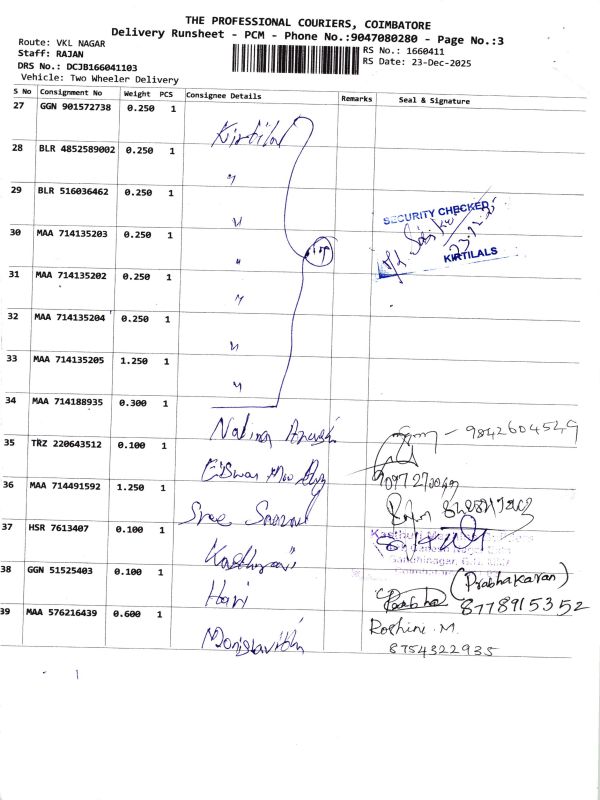 THE PROFESSIONAL COURIERS, COIMBATORE
Delivery Runsheet - PCM - Phone No.:9047080280 - Page No.:3
Route: VKL NAGAR
Staff: RAJAN
DRS No.: DCJB166041103
Vehicle: Two Wheeler Delivery
RS No.: 1660411
RS Date: 23-Dec-2025
S No Consignment No Weight PCS Consignee Details Remarks Seal & Signature
27 GGN 901572738 0.250 1
Kirtilal
28 BLR 4852589002 0.250 1
"
29 BLR 516036462 0.250 1
"
SECURITY CHECKED
30 MAA 714135203 0.250 1
"
KIRTILALS
31 MAA 714135202 0.250 1
"
32 MAA 714135204 0.250 1
"
33 MAA 714135205 1.250 1
"
34 MAA 714188935 0.300 1
9842604549
35 TRZ 220643512 0.100 1
36 MAA 714491592 1.250 1
Sree
37 HSR 7613407 0.100 1
Kasthuri
38 GGN 51525403 0.100 1
Hari
(Prabhakaran)
8778915352
39 MAA 576216439 0.600 1
Roshini. M.
8754322935